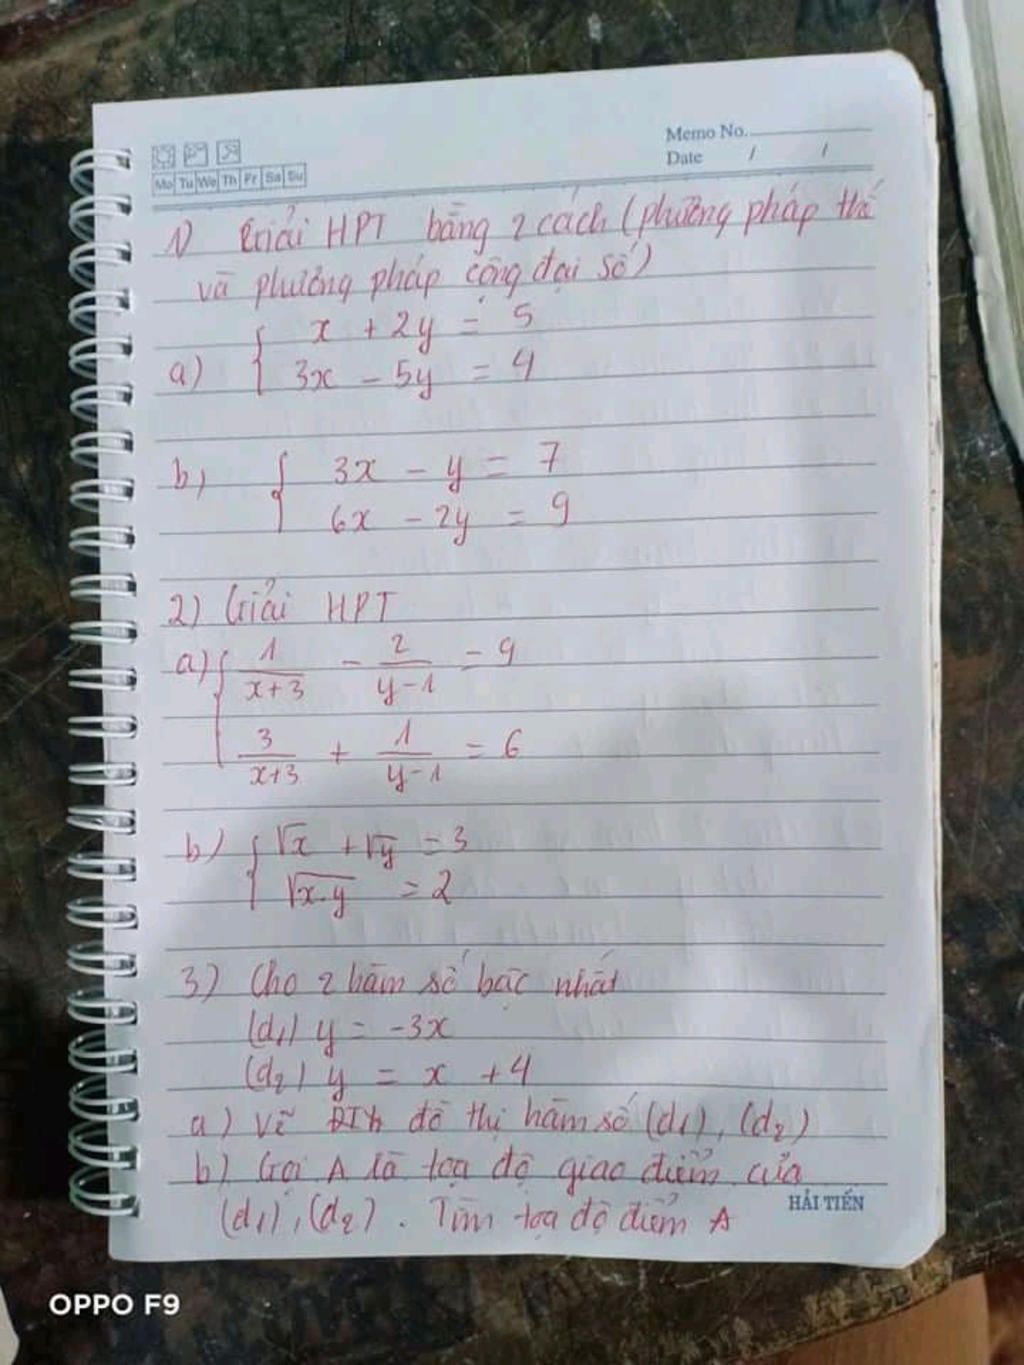 Memo No.
Date / /
Mo Tu We Th Fr Sa Su
1) Giải HPT bằng 2 cách (phương pháp thế
và phương pháp cộng đại số)
x + 2y = 5
a) 3x - 5y = 4
b) 3x - y = 7
6x - 2y = 9
2) Giải HPT
a) 1/(x+3) - 2/(y-1) = 9
3/(x+3) + 1/(y-1) = 6
b) √x + √y = 3
√x.y = 2
3) Cho 2 hàm số bậc nhất
(d1) y = -3x
(d2) y = x + 4
a) Vẽ đồ thị hàm số (d1), (d2)
b) Gọi A là toạ độ giao điểm của
(d1), (d2). Tìm toạ độ điểm A
HẢI TIẾN
OPPO F9